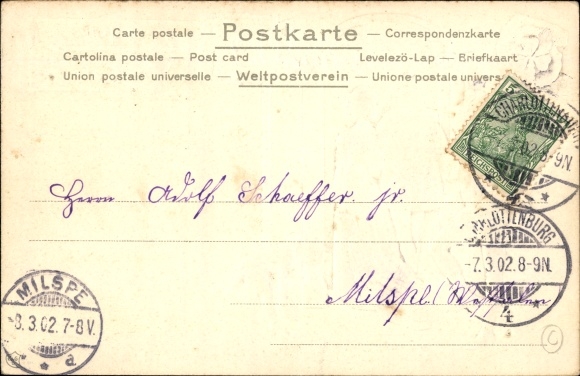 Carte postale — Postkarte — Correspondenzkarte
Cartolina postale — Post card Levelezö-Lap — Briefkaart
Union postale universelle — Weltpostverein — Unione postale univers
5
CHARLOTTENBURG
02.8-9N.
4
Herrn Adolf Schaeffer. jr.
CHARLOTTENBURG
-7.3.02.8-9N.
4
Milspe (Westfalen
MILSPE
-8.3.02.7-8V.
* * a
©